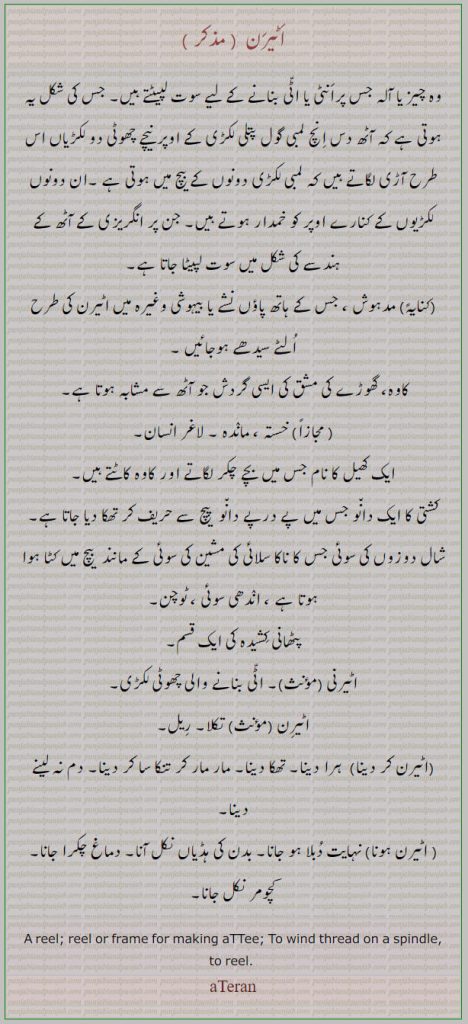 اَٹیرَن (مذکر)
وہ چیز یا آلہ جس پر اَنٹی یا اٹّی بنانے کے لیے سوت لپیٹتے ہیں۔ جس کی شکل یہ
ہوتی ہے کہ آٹھ دس اِنچ لمبی گول پتلی لکڑی کے اوپر نیچے چھوٹی دو لکڑیاں اس
طرح آڑی لگاتے ہیں کہ لمبی لکڑی دونوں کے بیچ میں ہوتی ہے ۔ان دونوں
لکڑیوں کے کنارے اوپر کو خمدار ہوتے ہیں۔ جن پر انگریزی کے آٹھ کے
ہندسے کی شکل میں سوت لپیٹا جاتا ہے۔
(کنایۃً) مدہوش ، جس کے ہاتھ پاؤں نشے یا بیہوشی وغیرہ میں اٹیرن کی طرح
اُلٹے سیدھے ہوجائیں ۔
کاوہ، گھوڑے کی مشق کی ایسی گردش جو آٹھ سے مشابہ ہوتا ہے۔
(مجازاً) خستہ ، ماندہ ۔ لاغر انسان۔
ایک کھیل کا نام جس میں بچے چکر لگاتے اور کاوہ کاٹتے ہیں۔
کشتی کا ایک دانْو جس میں پے در پے دانْو پیچ سے حریف کر تھکا دیا جاتا ہے۔
شال دوزوں کی سوئی جس کا ناکا سلائی کی مشین کی سوئی کے مانند بیچ میں کٹا ہوا
ہوتا ہے ، اندھی سوئی ، ٹوچن۔
پٹھانی کشِیدہ کی ایک قسم۔
اٹیرنی (مؤنث)۔ اٹّی بنانے والی چھوٹی لکڑی۔
اٹیرِن (مؤنث) تکلا۔ رِیل۔
(اٹیرن کر دینا) ہرا دینا۔ تھکا دینا۔ مار مار کر تنکا سا کر دینا۔ دم نہ لینے
دینا۔
( اٹیرن ہونا) نہایت دُبلا ہو جانا۔ بدن کی ہڈیاں نکل آنا۔ دماغ چکرا جانا۔
کچومر نکل جانا۔
A reel; reel or frame for making aTTee; To wind thread on a spindle,
to reel.
aTeran